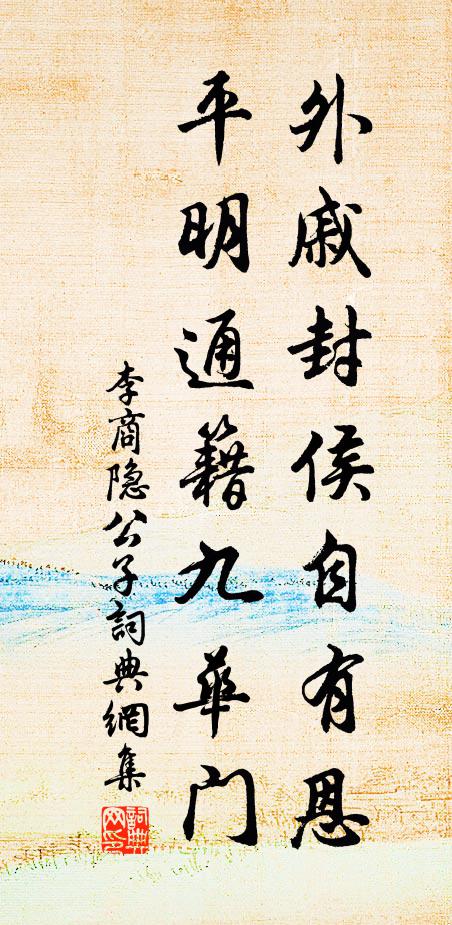 外戚封侯自有恩
平明通籍九華門
李商隐公子詞典網集
詞典网印